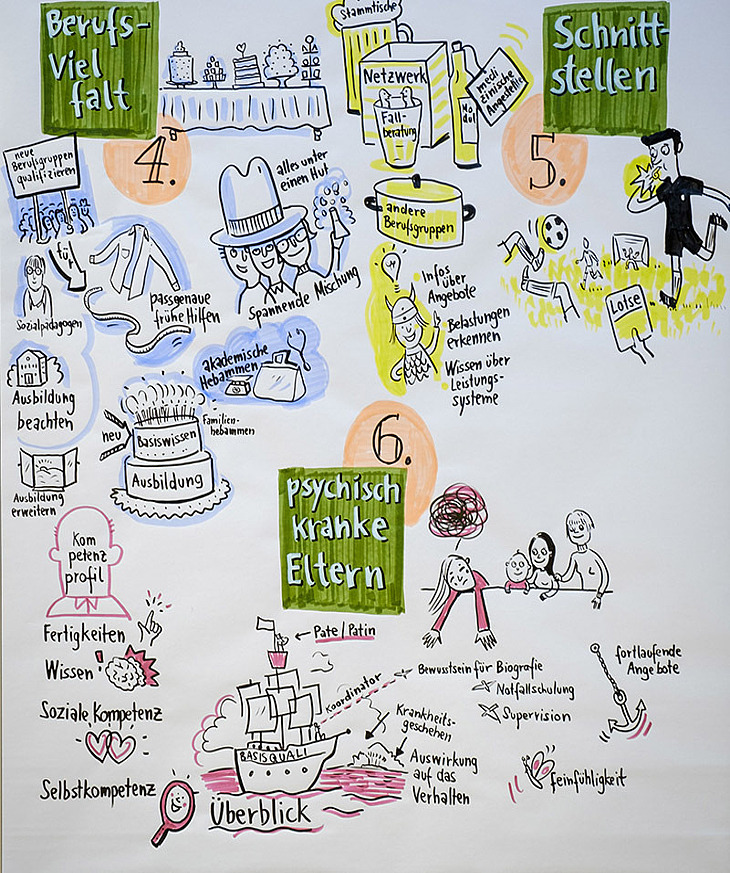 Berufs-
Viel
falt
4.
neue
Berufsgruppen
qualifizieren
für
Sozialpädagogen
passgenaue
frühe Hilfen
alles unter
einen Hut
Spannende Mischung
Ausbildung
beachten
Ausbildung
erweitern
akademische
Hebammen
Familien-
hebammen
neu
Basiswissen
Ausbildung
Stammtische
Netzwerk
Fall-
beratung
medi
zinische
Angestellte
andere
Berufsgruppen
Infos
über
Angebote
Belastungen
erkennen
Wissen über
Leistungs-
systeme
Schnitt-
stellen
5.
Lotse
6.
psychisch
kranke
Eltern
Kom
petenz
profil
Fertigkeiten
Wissen
Soziale Kompetenz
Selbstkompetenz
Pate/Patin
Koordinator
BASISQUALI
Überblick
Bewusstsein für Biografie
Notfallschulung
Supervision
Krankheits-
geschehen
Auswirkung
auf das
Verhalten
fortlaufende
Angebote
feinfühligkeit